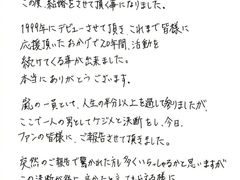 この度、結婚をさせて頂く事になりました。
1999年にデビューさせて頂き、これまで皆様に
応援頂いたおかげで20年間、活動を
続けてくる事が出来ました。
本当にありがとうございます。
嵐の一員として、人生の半分以上を過して参りましたが、
ここで一人の男としてケジメと決断をし、今日、
ファンの皆様に、ご報告させて頂きました。
突然のご報告で驚かれた方も多くいらっしゃるかと思いますが